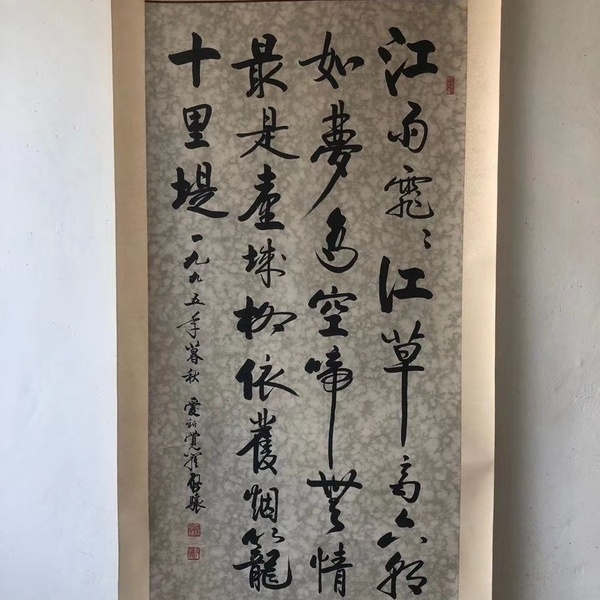 江雨霏〻江草齊六朝
如夢鳥空啼無情
最是臺城柳依舊烟籠
十里堤 一九九五年暮秋 愛新覺羅啟驤